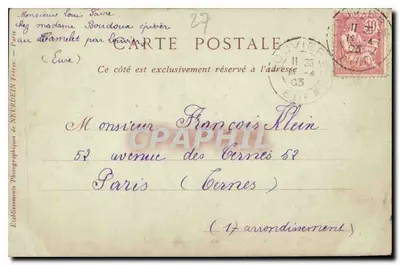 Monsieur Louis
chez madame Boudoux épicier
au Hamelet par Louviers
(Eure)
27
CARTE POSTALE
Ce côté est exclusivement réservé à l'adresse
Monsieur François Klein
52 avenue des Ternes 52
Paris (Ternes)
(17 arrondissement)
Établissements Photographiques de NEURDEIN Frères. — Paris
LOUVIERS
11 35
4
03
EURE
10